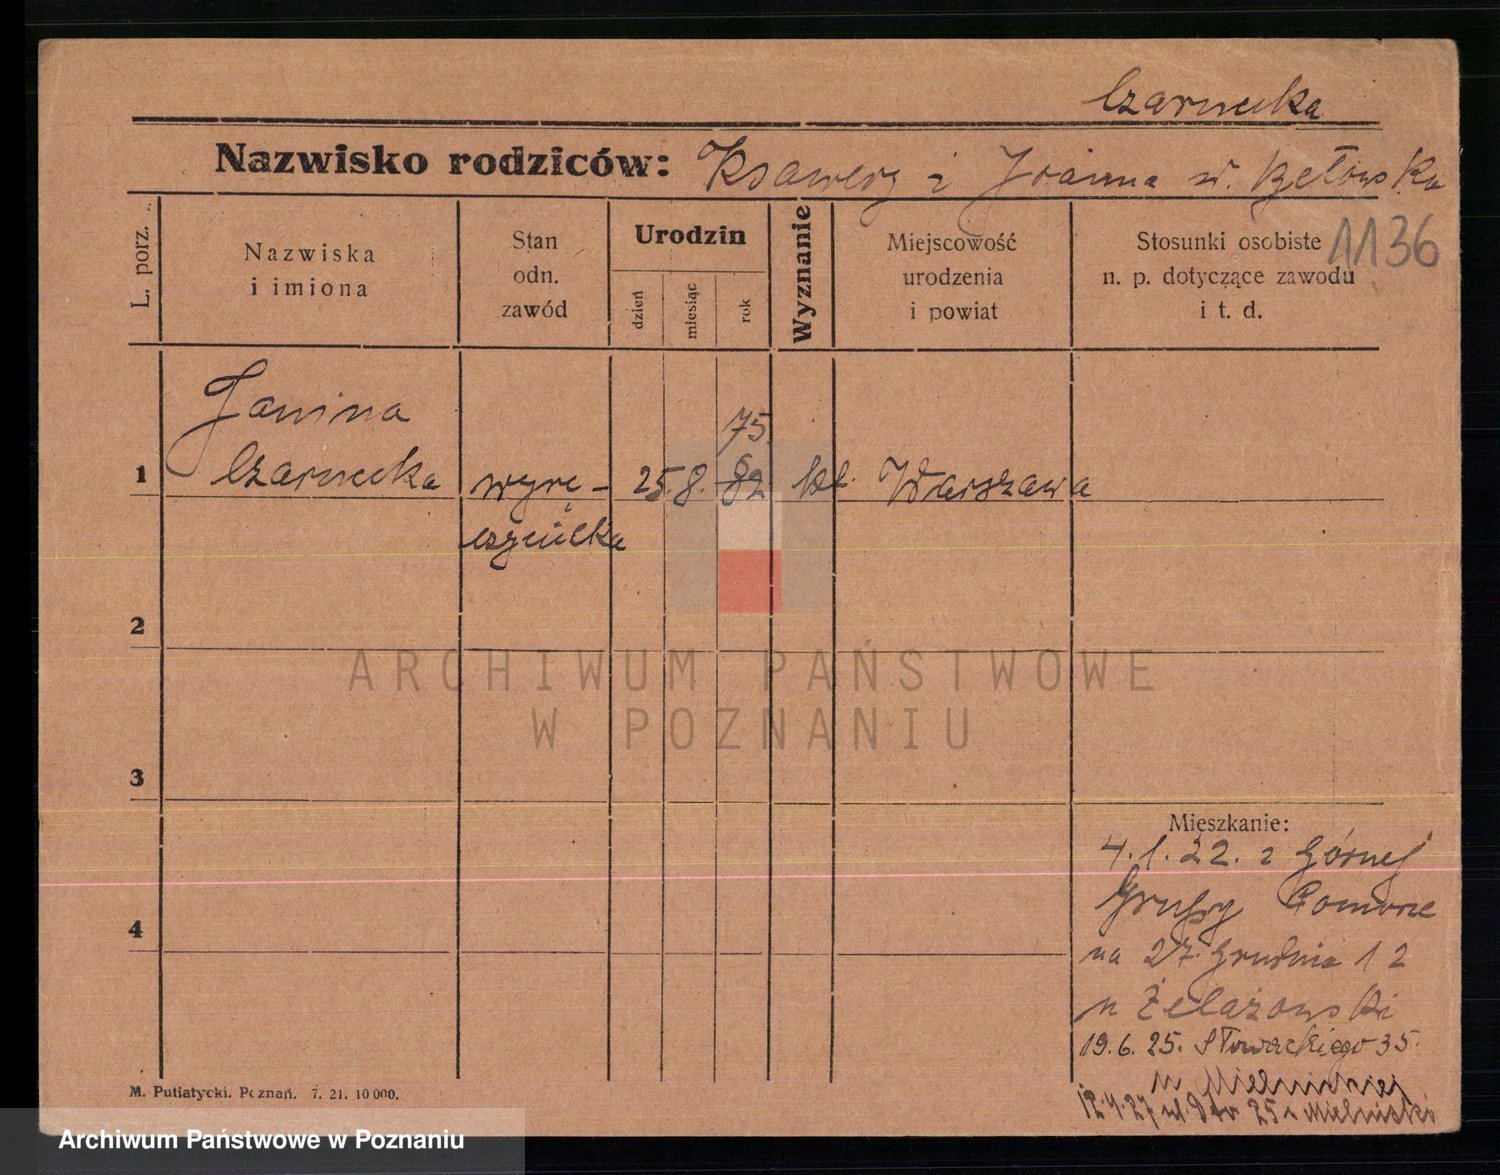 Czarnecka
Nazwisko rodziców: Ksawery i Joanna
1136
L. porz.
Nazwiska
i imiona
Stan
odn.
zawód
Urodzin
dzień
miesiąc
rok
Wyznanie
Miejscowość
urodzenia
i powiat
Stosunki osobiste
n. p. dotyczące zawodu
i t. d.
Janina
75.
1 Czarnecka wyrę- 25. 8. 82 kt. Warszawa
czycielka
2
ARCHIWUM PAŃSTWOWE
W POZNANIU
3
Mieszkanie:
4.1.22. z Górnej
Grupy Pomorze
4
na 27. Grudnia 12
u Żelazowski
19.6.25. Słowackiego 35.
u Mielnickiej
12.4.27 25
M. Putiatycki. Poznań. 7. 21. 10 000.
Archiwum Państwowe w Poznaniu